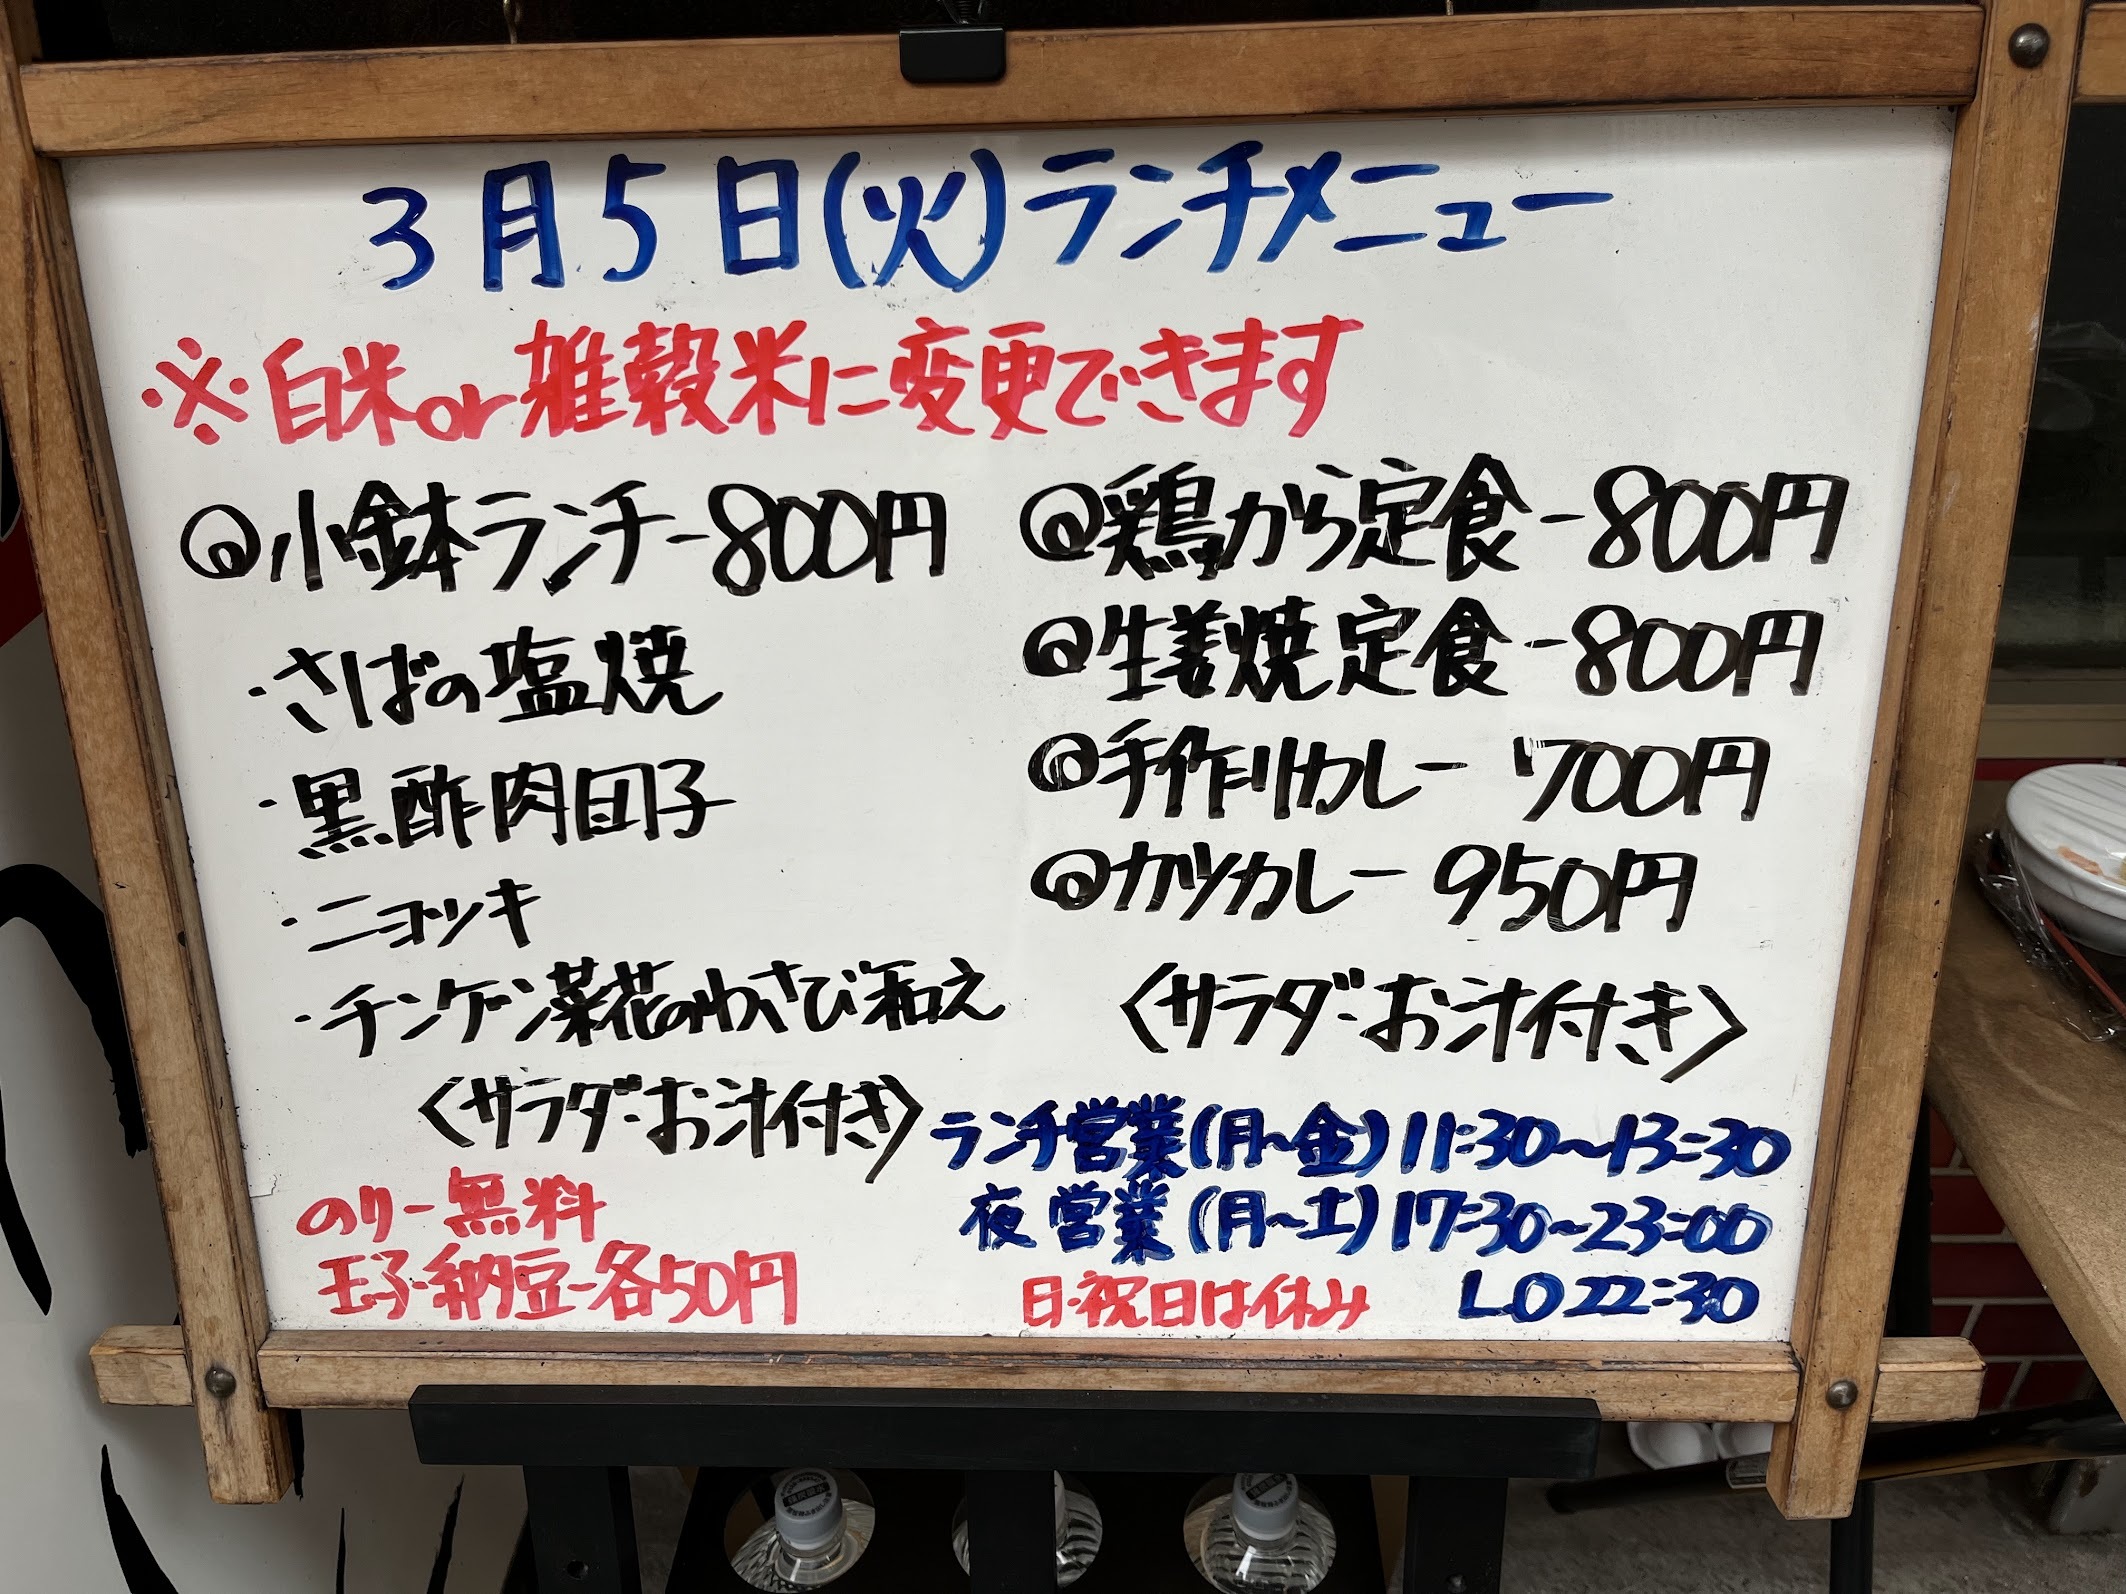 3月5日(火)ランチメニュー
※白米or雑穀米に変更できます
◎小鉢ランチ-800円
・さばの塩焼
・黒酢肉団子
・ニョッキ
・チンゲン菜花のわさび和え
〈サラダ・お汁付き〉
のり-無料
玉子・納豆-各50円
◎鶏から定食-800円
◎生姜焼定食-800円
◎手作りカレー 700円
◎カツカレー 950円
〈サラダ・お汁付き〉
ランチ営業(月〜金)11:30〜13:30
夜営業(月〜土)17:30〜23:00
日・祝日は休み L.O22:30